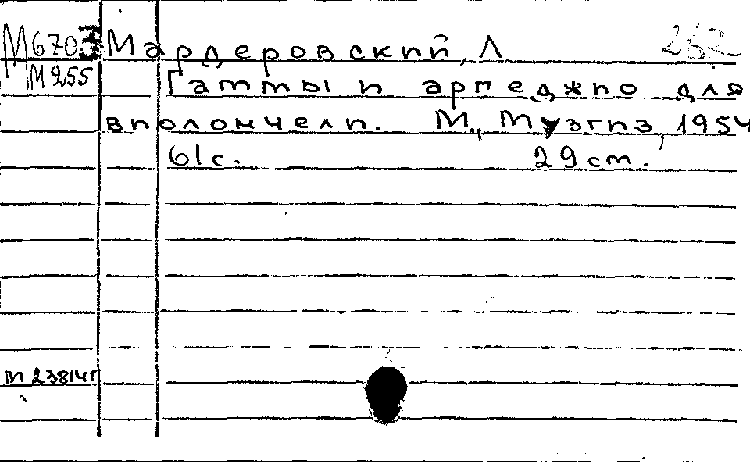 М6703 Мардеровский, Л 252
М255 Гаммы и арпеджио для
виолончели. М., Музгиз, 1954
61с. 29см.
М 23814г